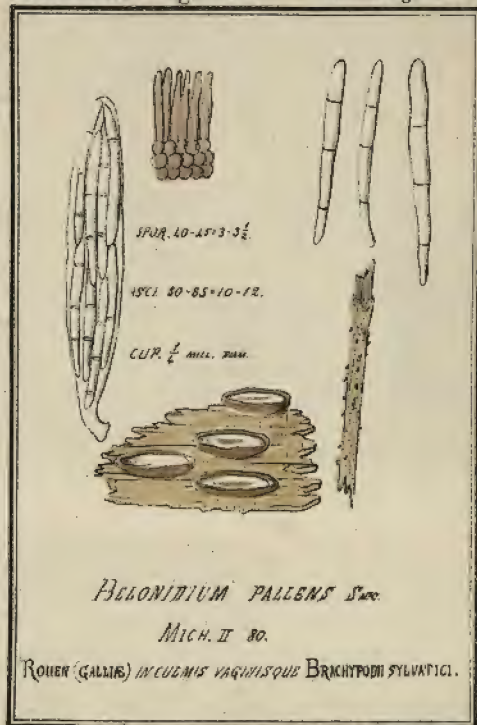 SPOR. 40-45=3-3½.
ASCI. 80-85=10-12.
CUP. mill.
BELONIDIUM PALLENS Sacc.
MICH. II 80.
ROUEN (GALLIÆ) IN CULMIS VAGINISQUE BRACHYPODII SYLVATICI.